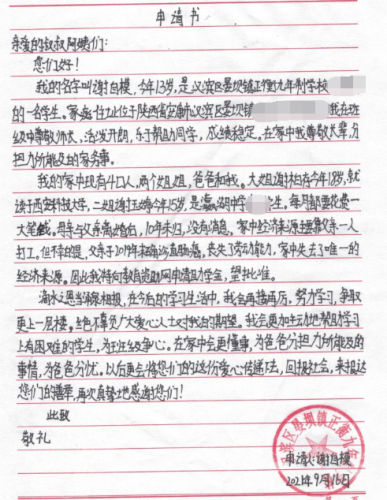 申请书
亲爱的叔叔阿姨们：
您们好！
我的名字叫谢自模，今年13岁，是汉滨区晏坝镇正衡九年制学校
的一名学生。家庭住址位于陕西省安康市汉滨区晏坝镇 我在班
级中尊敬师长，活泼开朗，乐于帮助同学，成绩稳定。在家中我尊敬长辈，分
担力所能及的家务事。
我的家中现有4口人，两个姐姐，爸爸和我。大姐谢 今年18岁，就
读于西安科技大学，二姐谢 今年15岁，是 中学 生，每月都要花费一
大笔钱。母亲与父亲离婚后，10年未归，没有消息，家中经济来源主要靠父亲一人
打工。但不幸的是，父亲于2019年末确诊直肠癌，丧失了劳动能力，家中失去了唯一的
经济来源。因此我特向教育资助网申请助学金，望批准。
滴水之恩当涌泉相报，在今后的学习生活中，我会再接再厉，努力学习，争取
更上一层楼。绝不辜负广大爱心人士对我的期望。我会更加主动地帮助学习
上有困难的学生，为班级争心。在家中会更懂事，为爸爸分担力所能及的
事情，为爸爸分忧。以后更会将您们的这份爱心传递下去，回报社会，来报达
您们的善举，再次真挚地感谢您们！
此致
敬礼
申请人：谢自模
2021年9月16日